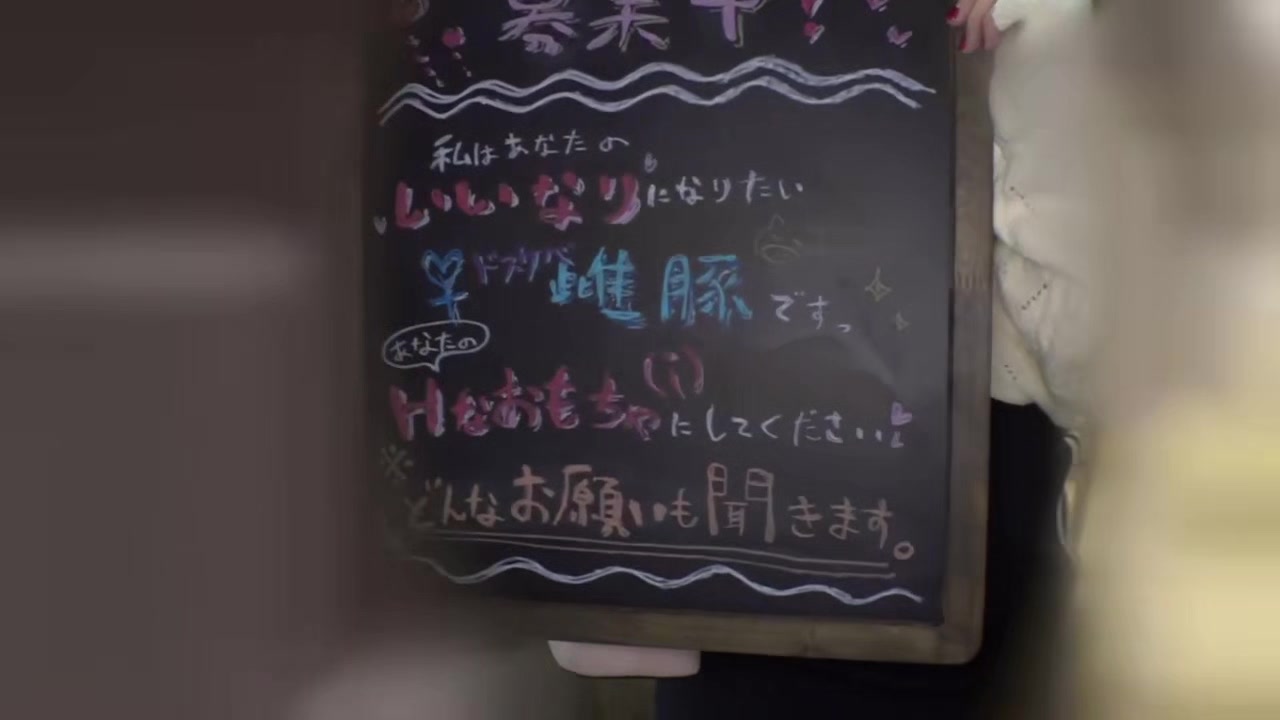 募集中!
私はあなたの
いいなりになりたい
ドスケベ雌豚です。
あなたの
Hなおもちゃ(i)にしてください
※どんなお願いも聞きます。